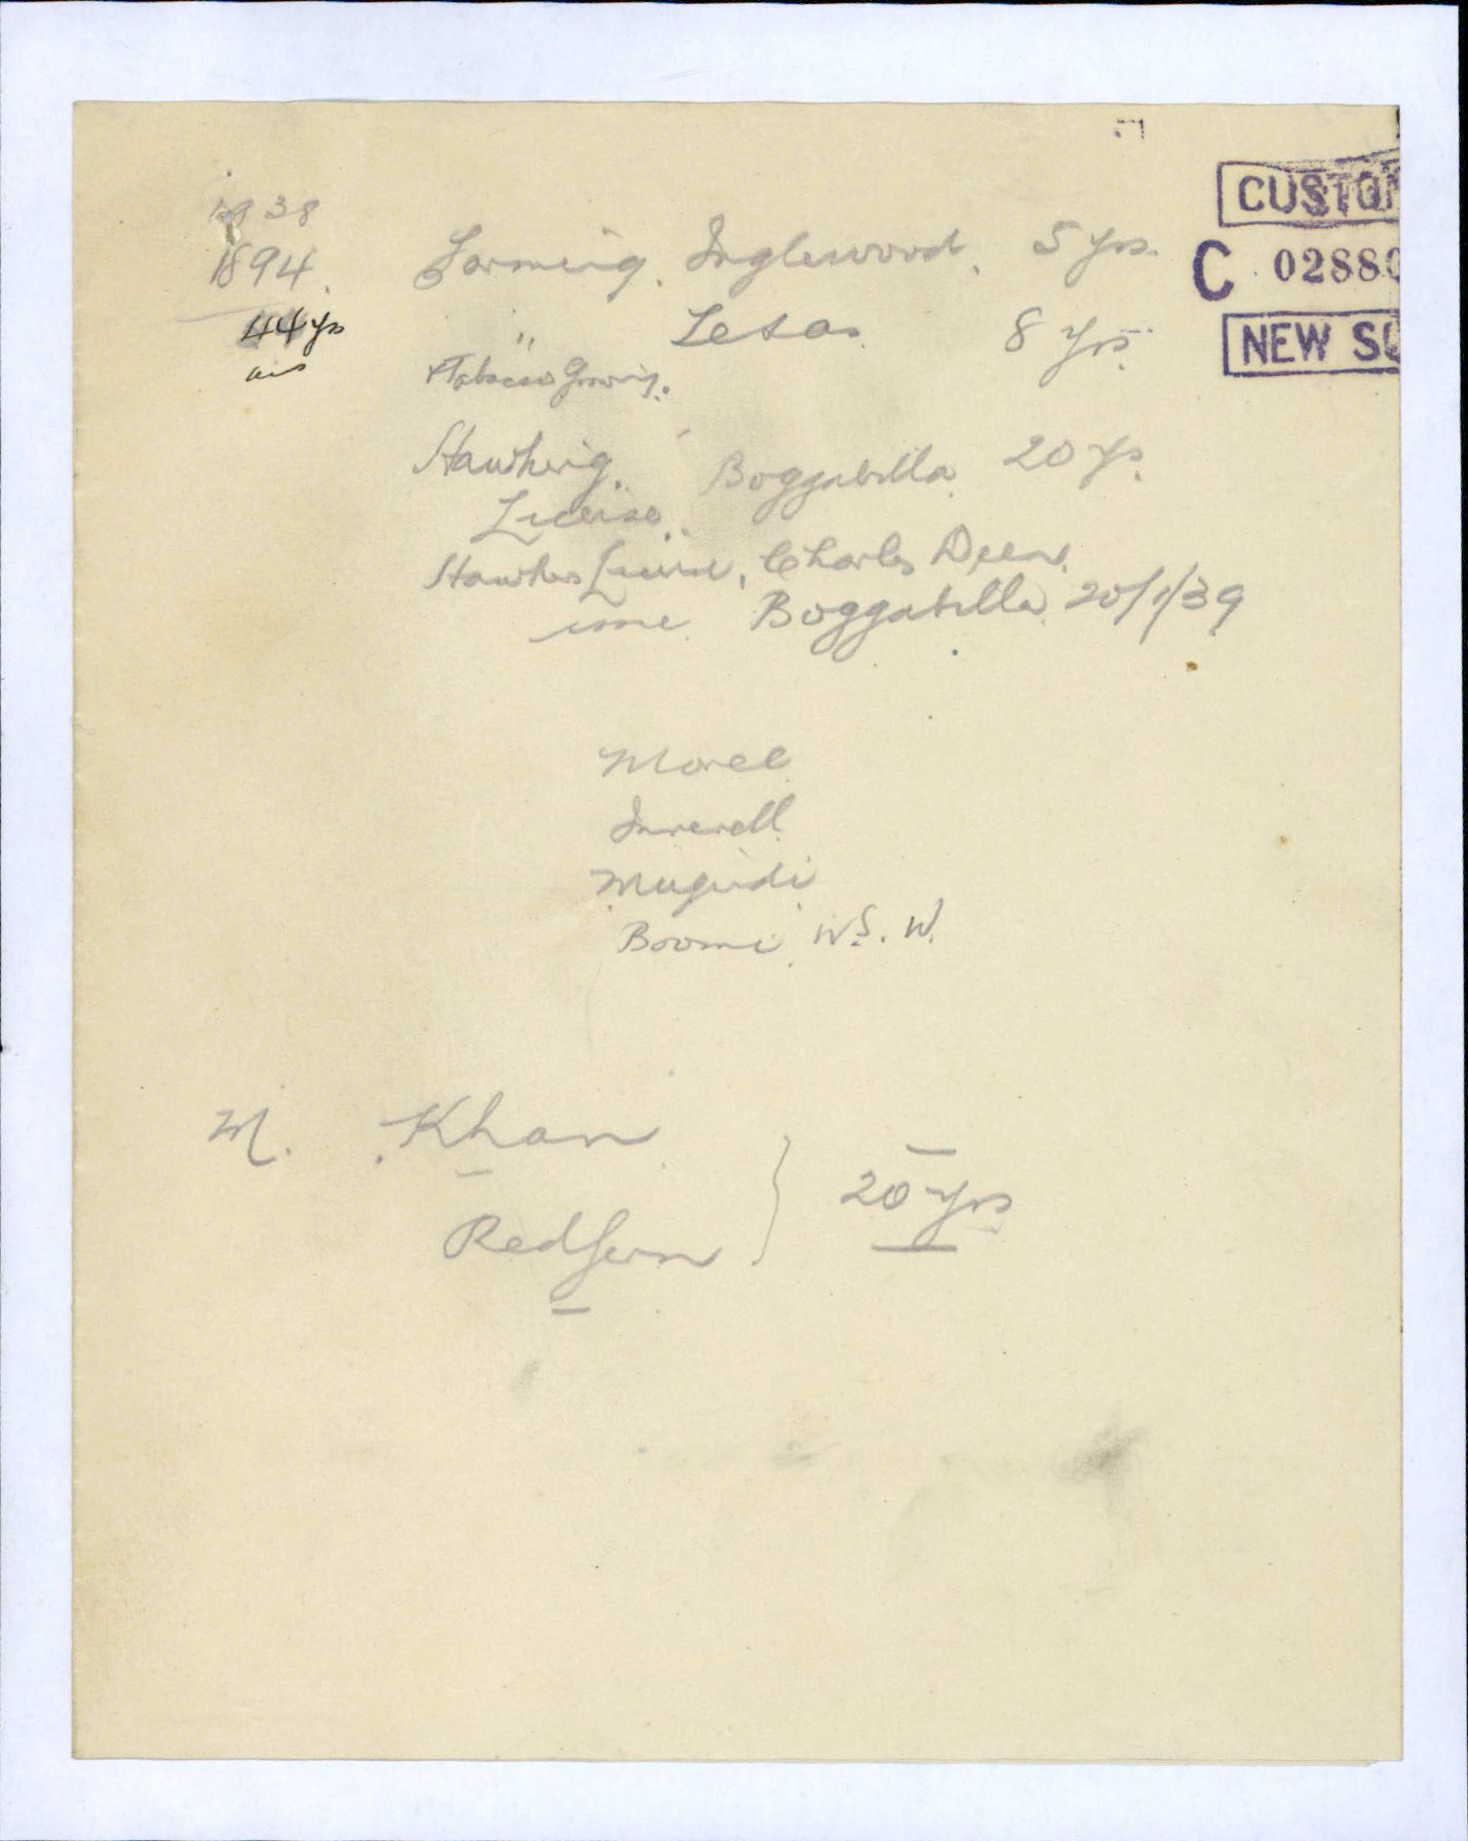 CUSTO
C 0288
NEW S
1938
1894.
44 yrs
Farming. Inglewood. 5 yrs.
" Texas. 8 yrs.
& Tobacco Growing.
Hawking. Boggabilla 20 yrs.
License.
Hawkers License, Charles Deen.
Boggabilla 20/1/39
Moree
Inverell
Mugindi
Boomi N.S.W.
M. Khan
Redfern } 20 yrs